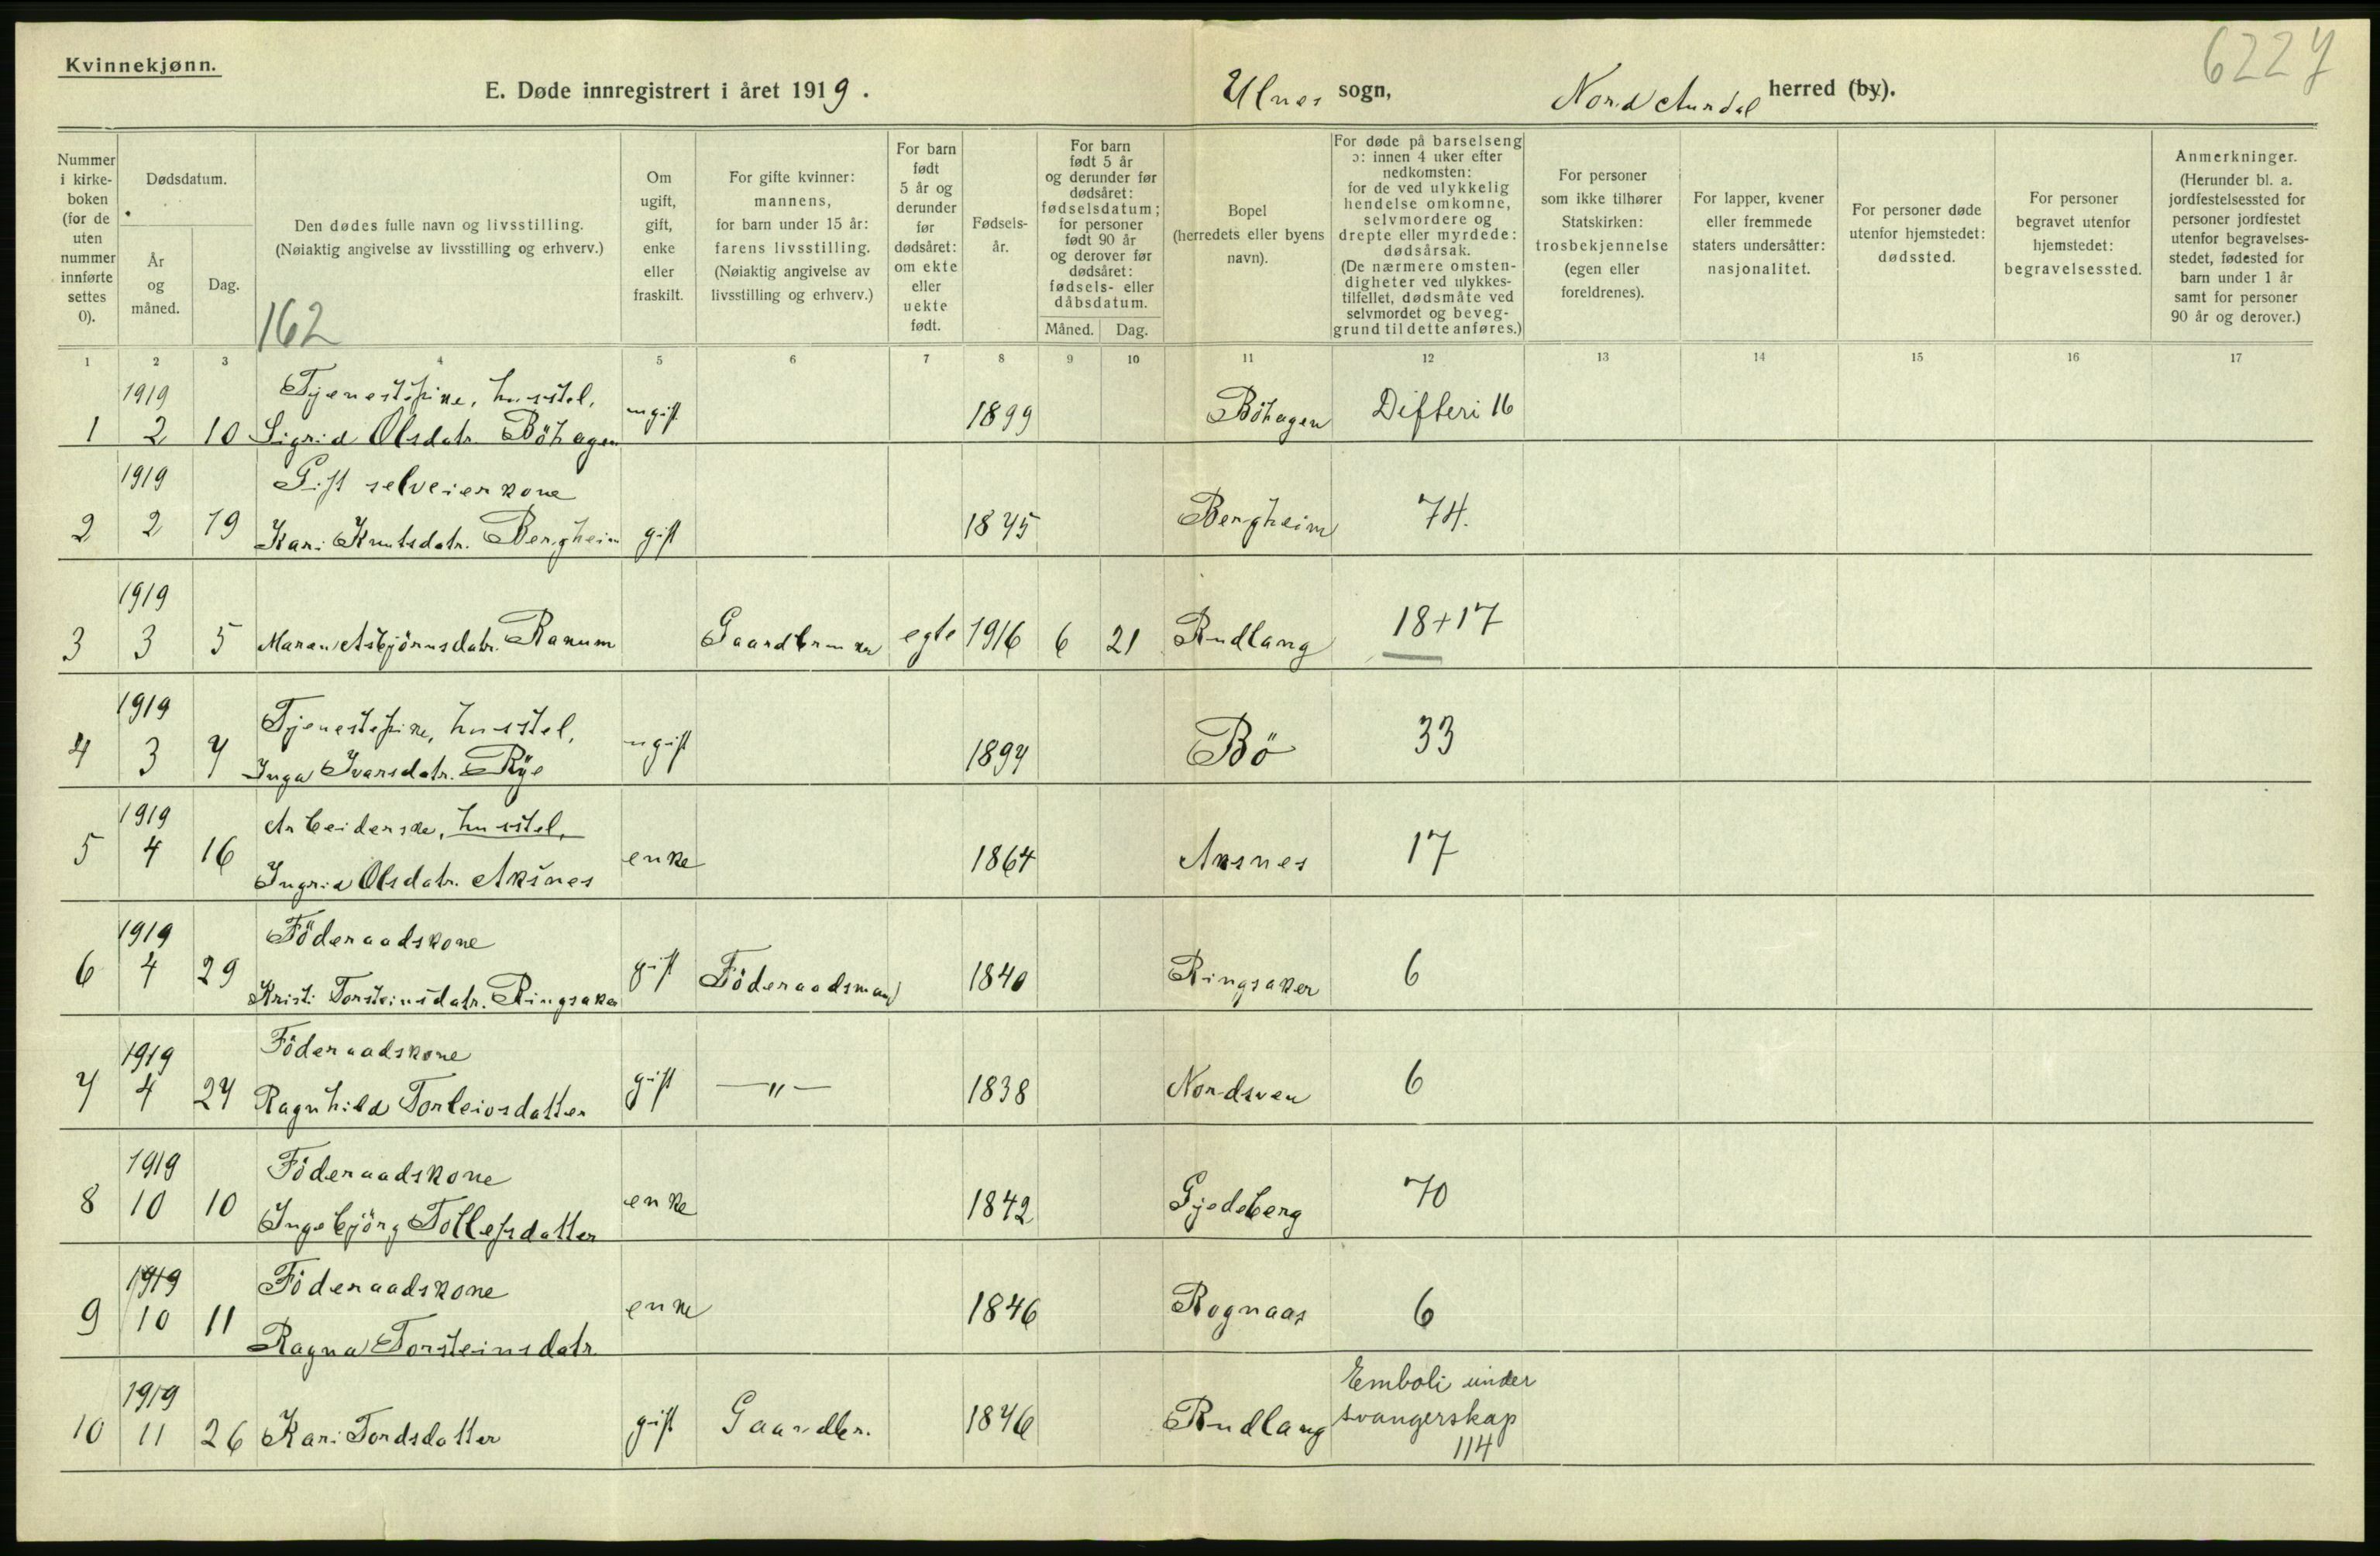 Kvinnekjønn.
6227
E. Døde innregistrert i året 1919. Ulnes sogn, Nord Aurdal herred (by).
Nummer i kirke-boken (for de uten nummer innførte settes 0).
Dødsdatum.
År og måned.
Dag.
Den dødes fulle navn og livsstilling.
(Nøiaktig angivelse av livsstilling og erhverv.)
162
Om ugift, gift, enke eller fraskilt.
For gifte kvinner: mannens, for barn under 15 år: farens livsstilling. (Nøiaktig angivelse av livsstilling og erhverv.)
For barn født 5 år og derunder før dødsåret: om ekte eller uekte født.
Fødsels-år.
For barn født 5 år og derunder før dødsåret: fødselsdatum; for personer født 90 år og derover før dødsåret: fødsels- eller dåbsdatum.
Måned. Dag.
Bopel (herredets eller byens navn).
For døde på barselseng ɔ: innen 4 uker efter nedkomsten: for de ved ulykkelig hendelse omkomne, selvmordere og drepte eller myrdede: dødsårsak. (De nærmere omsten-digheter ved ulykkes-tilfellet, dødsmåte ved selvmordet og beveg-grund til dette anføres.)
For personer som ikke tilhører Statskirken: trosbekjennelse (egen eller foreldrenes).
For lapper, kvener eller fremmede staters undersåtter: nasjonalitet.
For personer døde utenfor hjemstedet: dødssted.
For personer begravet utenfor hjemstedet: begravelsessted.
Anmerkninger. (Herunder bl. a. jordfestelsessted for personer jordfestet utenfor begravelses-stedet, fødested for barn under 1 år samt for personer 90 år og derover.)
1 2 3 4 5 6 7 8 9 10 11 12 13 14 15 16 17
1919 Tjenestepike, husstel,
1 2 10 Sigrid Olsdatr. Böhagen ugift 1899 Böhagen Difteri 16
1919 Gift selveierkone
2 2 19 Kari Knutsdatr. Bergheim gift 1845 Bergheim 74.
1919
3 3 5 Maran Asbjörnsdatr. Ranum Gaardbruker egte 1916 6 21 Rudlang 18+17
1919 Tjenestepike, husstel,
4 3 7 Inga Ivarsdatr. Rye ugift 1897 Bö 33
1919 Arbeiderske, husstel,
5 4 16 Ingrid Olsdatr. Aksnes enke 1864 Aksnes 17
1919 Föderaadskone
6 4 29 Kristi Torsteinsdatr. Ringsaker gift Föderaadsmand 1840 Ringsaker 6
1919 Föderaadskone
7 4 27 Ragnhild Torleivsdatter gift —"— 1838 Nordsveen 6
1919 Föderaadskone
8 10 10 Ingebjörg Tollefsdatter enke 1842 Gjedeberg 70
1919 Föderaadskone
9 10 11 Ragna Torsteinsdatr. enke 1846 Rognaas 6
1919 Emboli under
10 11 26 Kari Tordsdatter gift Gaardbr. 1876 Rudlang svangerskap
114